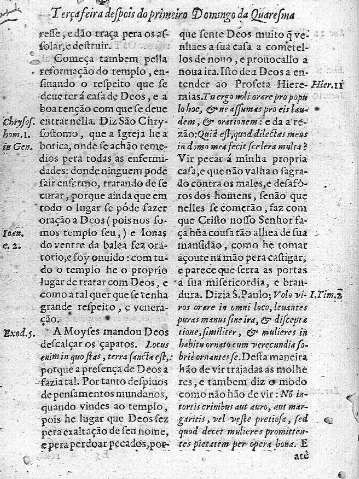 Terçafeira despois do primeiro Domingo da Quaresma
resse, e dão traça pera os as-
solar, e destruir.
Começa tambem pella
reformação do templo, en-
sinando o respeito que se
deve ter á casa de Deos, e a
boa tenção com que se deve
entrar nella. Diz São Chry-
sostomo, que a Igreja he a
botica, onde se achão reme-
dios pera todas as enfermi-
dades: donde ninguem pode
sair enfermo, tratando de se
curar, porque ainda que em
todo o lugar se póde fazer
oração a Deos (pois nos so-
mos templo seu, ) e Ionas
do ventre da balea fez ora-
torio, e foy ouuido: com tu-
do o templo he o proprio
lugar de tratar com Deos, e
como a tal quer se tenha
grande respeito, e venera-
ção.
A Moyses mandou Deos
descalçar os çapatos. Locus
enim in quo stas, terra sancta est,
porque a presença de Deos a
fazia tal. Por tanto despiuos
de pensamentos mundanos,
quando vindes ao templo,
pois he lugar que Deos fez
pera exaltação de seu nome,
e pera perdoar peccados, por-
Chrysos.
hom. 11.
in Gen.
Ioan.
c. 2.
Exod. 5.
que sente Deos muito q̃ ve-
nhaes a sua casa a cometel-
los de nouo, e prouocallo a
noua ira. Isto deu Deos a en-
tender ao Profeta Hiere-
mias. Tu ergo noli orare pro popu
lo hoc, & ne assumas pro eis lau
dem, & orationem: e da a re-
zão; Quid est, quod dilectus meus
in domo mea fecit scelera multa?
Vir pecar á minha propria
casa, e que não valha o sagra-
do contra os males, e desafo-
ros dos homens, senão que
nelles se cometão, faz com
que Cristo nosso Senhor fa-
ça hũa cousa tão alhea de sua
mansidão, como he tomar
açoute na mão pera castigar,
e parece que serra as portas
a sua misericordia, e bran-
dura. Dizia S. Paulo; Volo vi-
ros orare in omni loco, leuantes
puras manus sine ira, & discepta
tione, similiter, & mulieres in
habitu ornato cum verecundia so-
brie ornantes se. Desta maneira
hão de vir trajadas as molhe
res, e tambem diz o modo
como não hão de vir: Nõ in
tortis crinibus aut auro, aut mar-
garitis, vel veste pretiosa, sed
quod decet mulieres promitten-
tes pietatem per opera bona. E
até
Hier. 11
1. Tim. 2